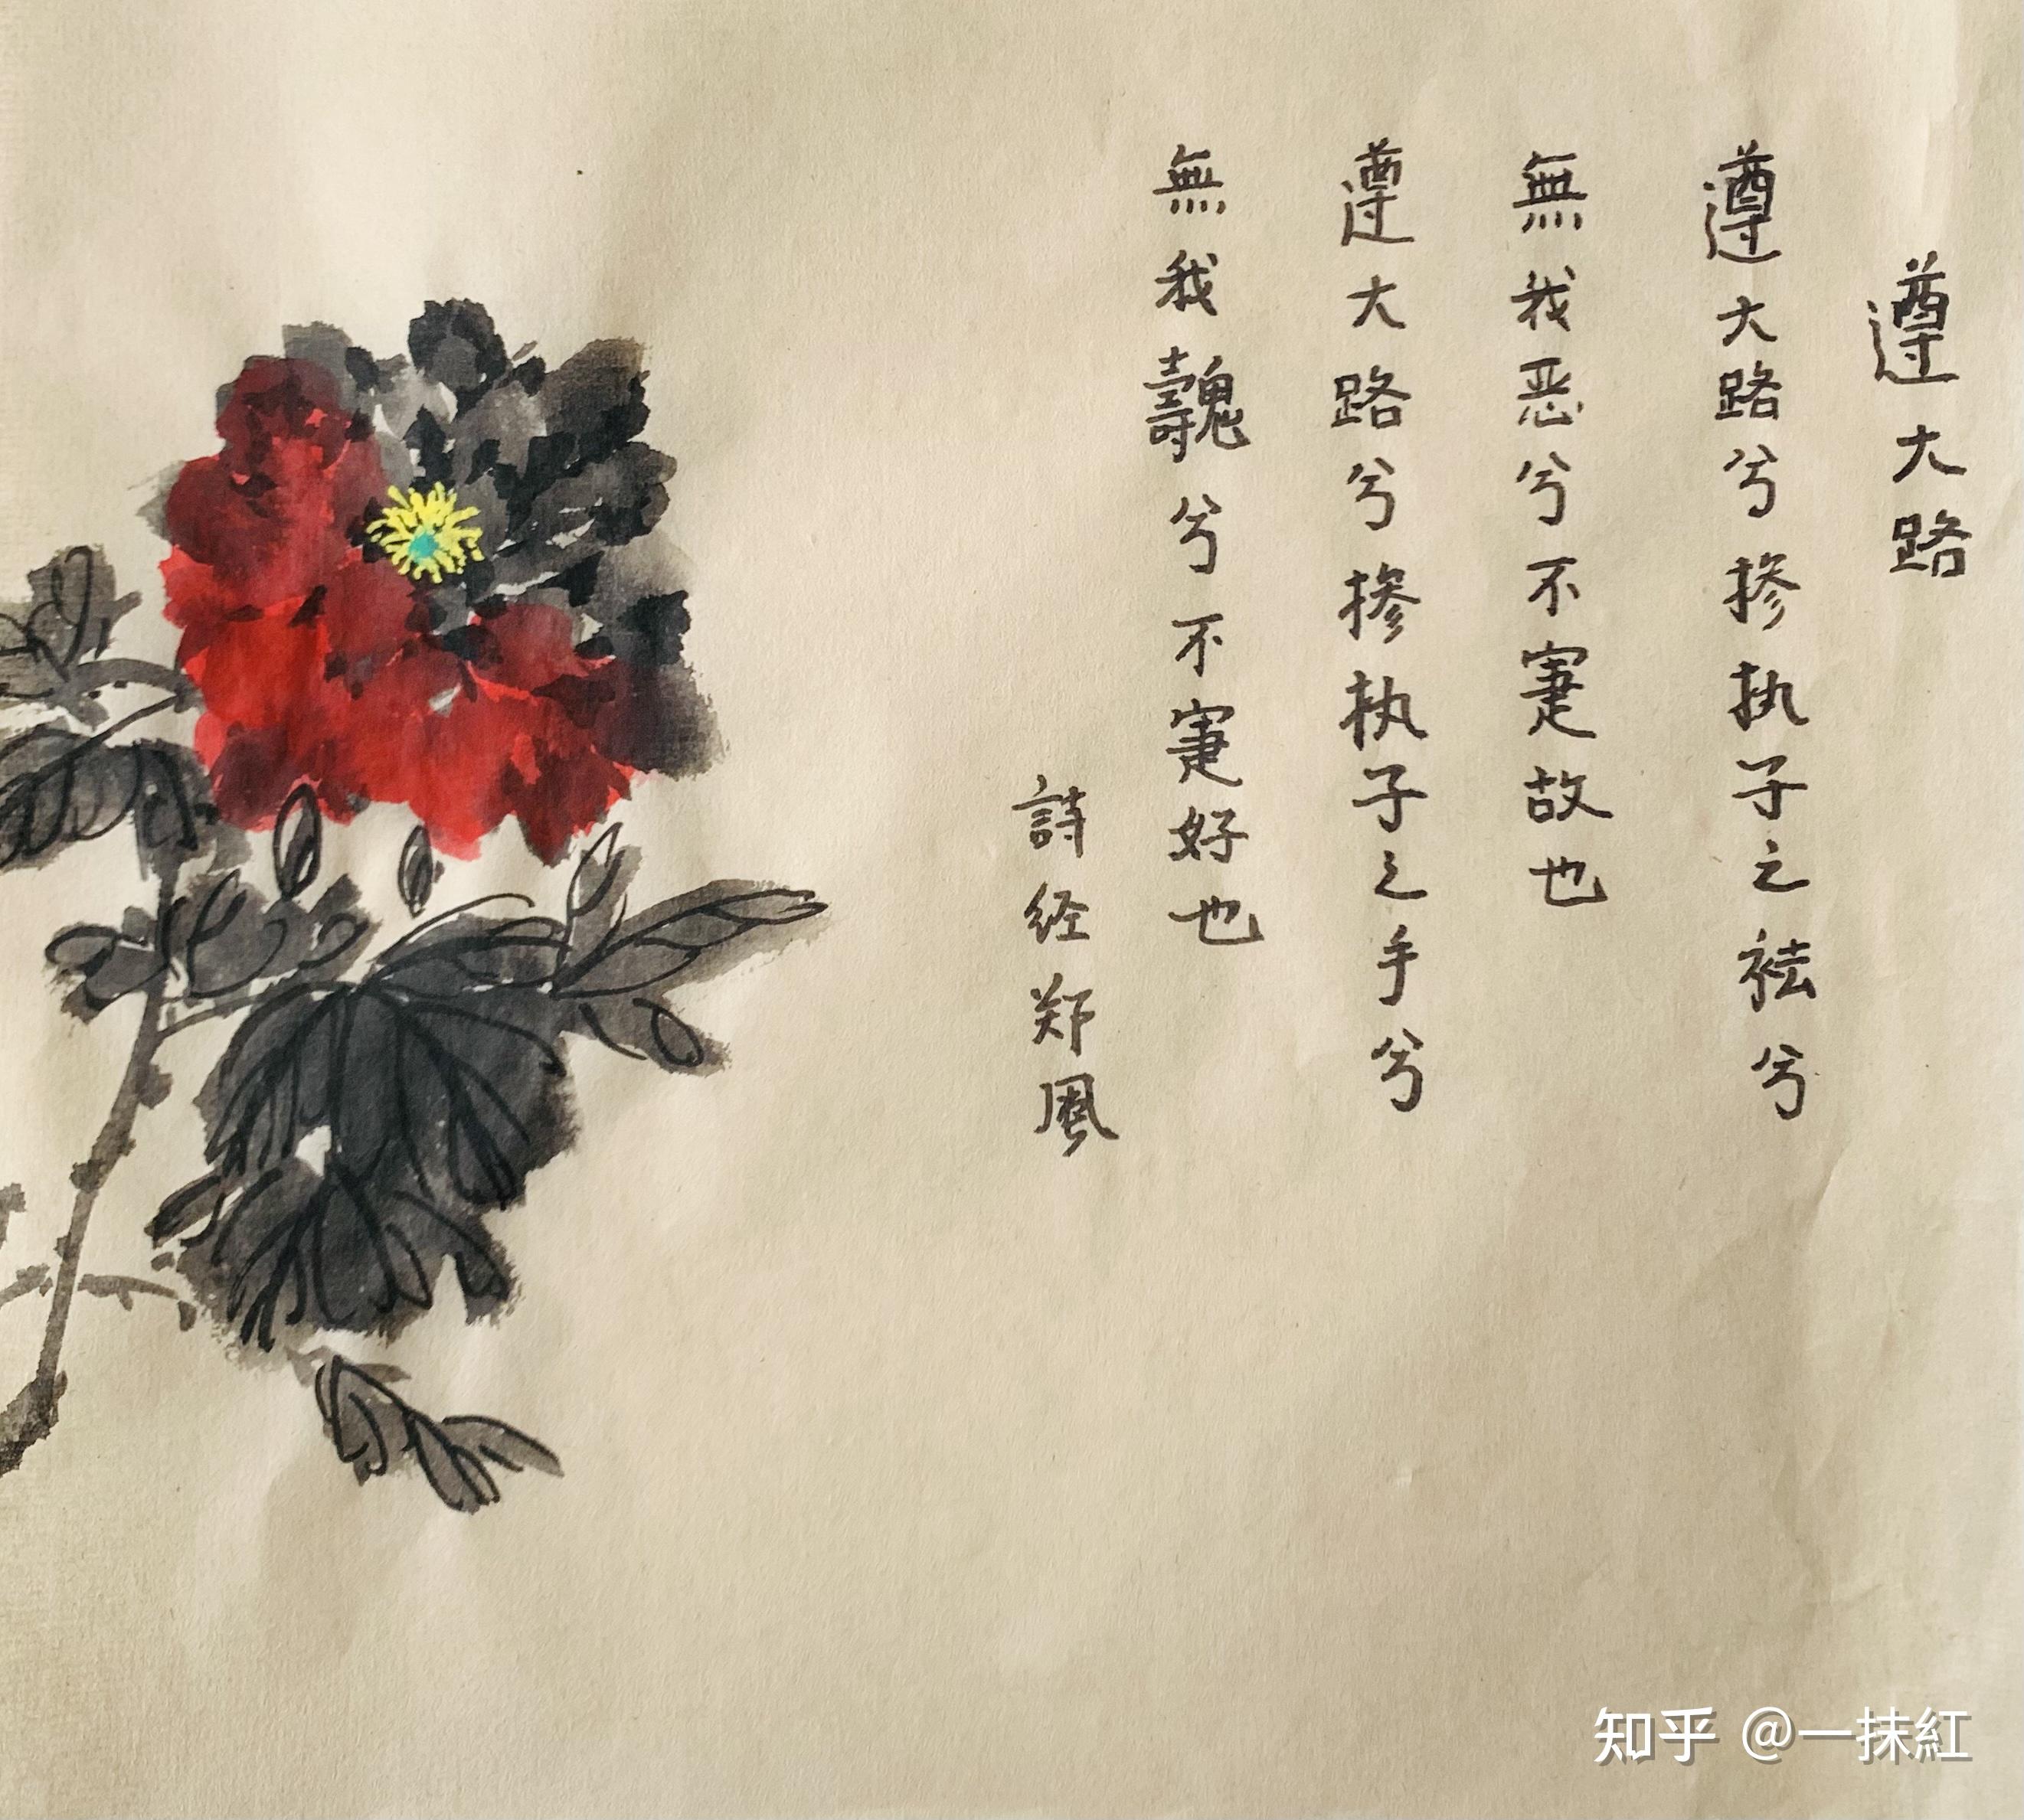 遵大路
遵大路兮掺执子之袪兮
無我恶兮不寁故也
遵大路兮掺执子之手兮
無我魗兮不寁好也
詩经郑風
知乎 @一抹紅